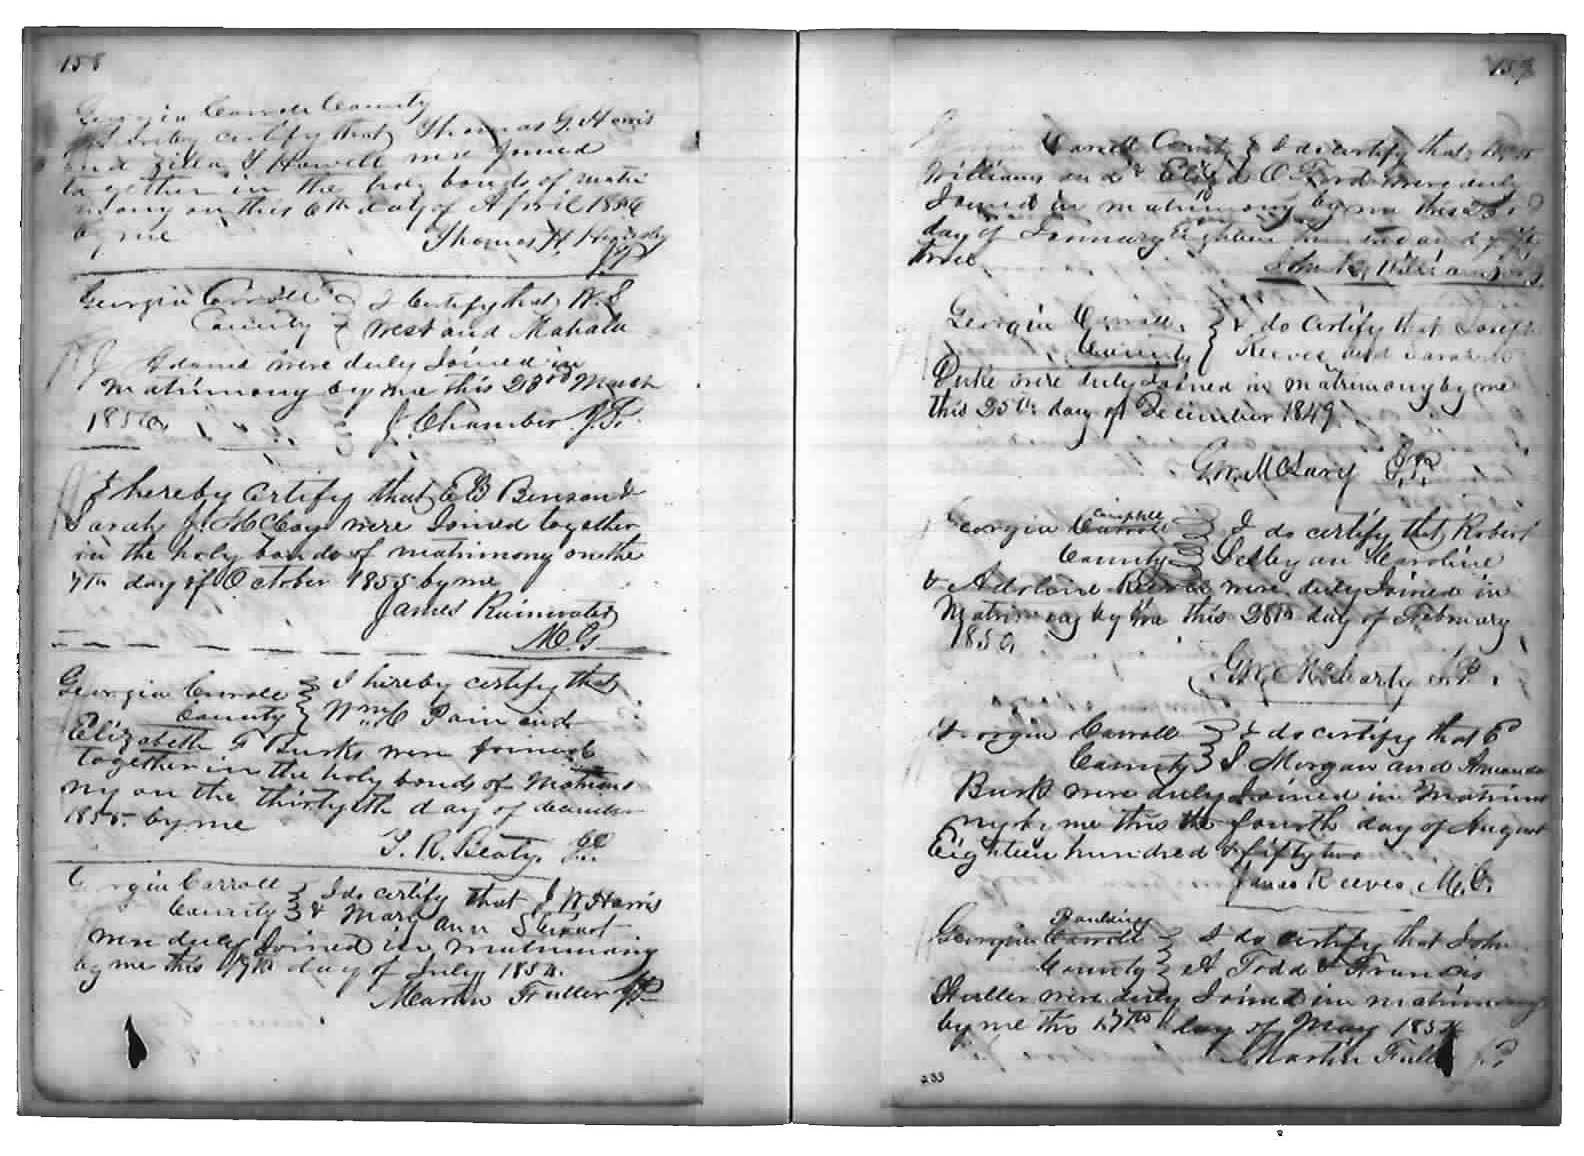 158
Georgia Carroll County
I hereby certify that Thomas G. Harris
and Zilla Y Howell were Joined
together in the holy bonds of matri
mony on this 6th day of April 1856
by me Thomas H.
JP
Georgia Carroll } I Certify that W. S
County } West and Mahala
J Adams were duly Joined in
Matrimony by me this 23rd March
1856. J. Chamber J.P.
I hereby certify that E B Benson &
Sarah J. McCoy were Joined together
in the holy bonds of matrimony on the
7th day of October 1855 by me
James Rainwater
M G
Georgia Carroll } I hereby certify that
County } Wm C Pain and
Elizabeth F Burks were Joined
together in the holy bonds of Matrimo
ny on the thirtyth day of december
1855. by me
T. R. Beaty. JP.
Georgia Carroll } I do certify that J W Harris
County } & Mary Ann Stewart
were duly Joined in matrimony
by me this 17th day of July 1854.
Martin Fuller JP
159
Carroll County } I do certify that
Williams and Eliza O Ford were duly
Joined in matrimony by me this 23
day of January Eighteen hundred and fifty
three
Williams
Georgia Carroll } I do certify that Joseph
County } Reeves and
Duke were duly Joined in matrimony by me
this 25th day of December 1849.
G. W. McLarty J.P.
Georgia Campbell Carroll } I do certify that Robert
County } an Caroline
& were duly Joined in
Matrimony by me this 28th day of February
1850
G W. McLarty J.P.
Georgia Carroll } I do certify that E
County } S Morgan and Amanda
Burk were duly Joined in Matrimo
ny by me this the fourth day of August
Eighteen hundred & fifty two
James Reeves M.G.
Georgia Paulding Carroll } I do certify that John
County } A Todd & Francis
Huller were duly Joined in matrimony
by me this 17th day of May 1854
Martin Fuller J.P.
233